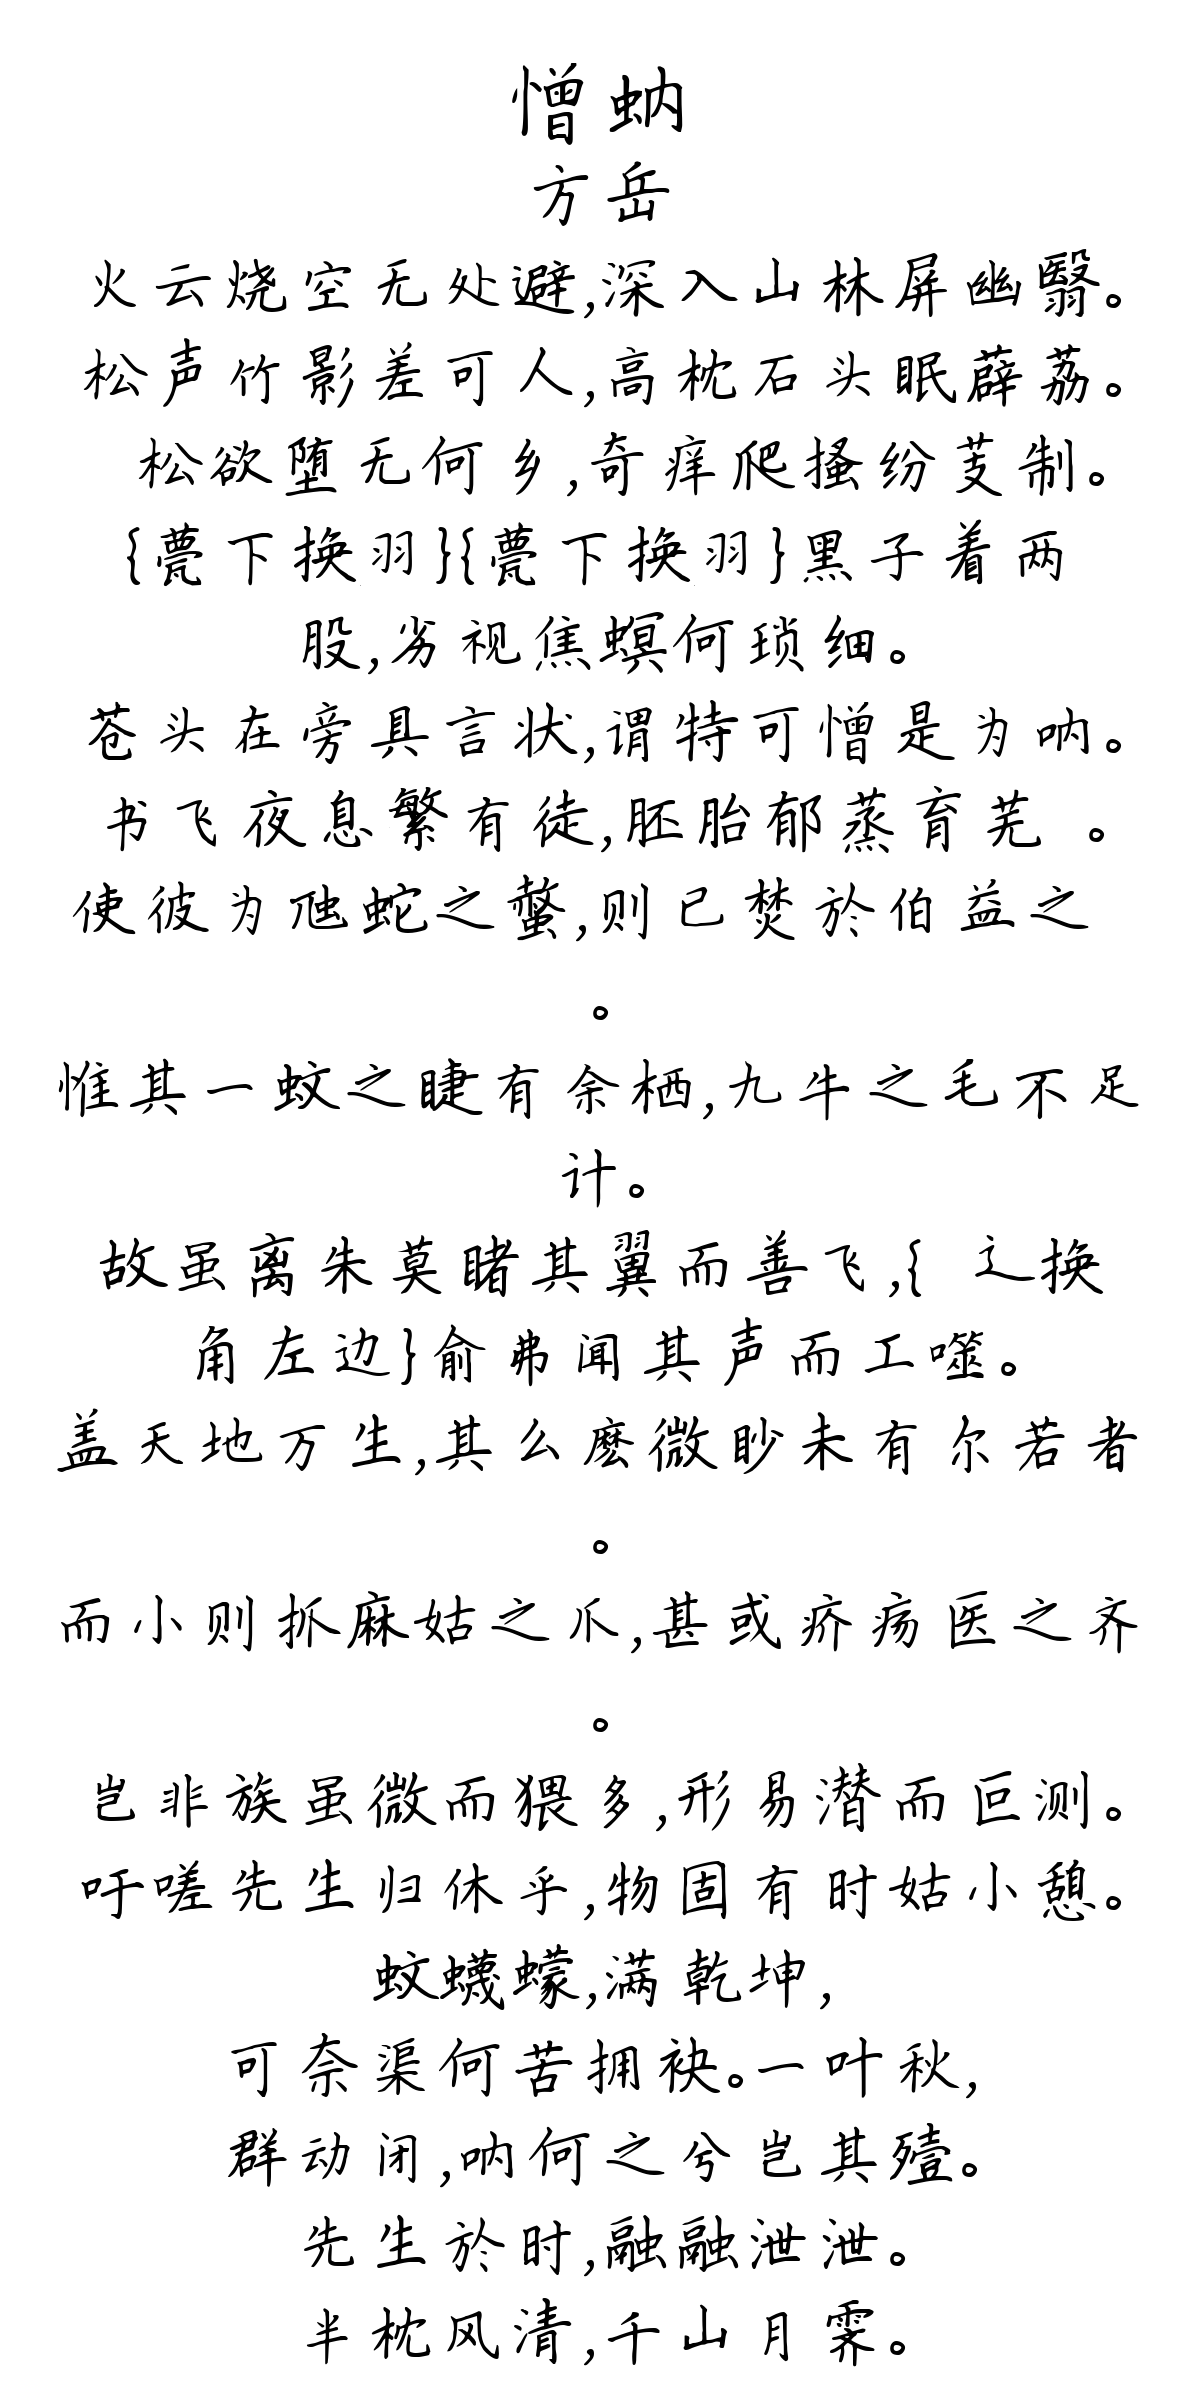 憎蚋
方岳
火云烧空无处避,深入山林屏幽翳。
松声竹影差可人,高枕石头眠薜荔。
松欲堕无何乡,奇痒爬搔纷芰制。
{薨下换羽}{薨下换羽}黑子着两
股,劣视焦螟何琐细。
苍头在旁具言状,谓特可憎是为呐。
书飞夜息繁有徒,胚胎郁蒸育芜 。
使彼为虺蛇之螫,则已焚於伯益之
。
惟其一蚊之睫有余栖,九牛之毛不足
计。
故虽离朱莫睹其翼而善飞,{ 辶换
角左边}俞弗闻其声而工噬。
盖天地万生,其么麽微眇未有尔若者
。
而小则抓麻姑之爪,甚或疥疡医之齐
。
岂非族虽微而猥多,形易潜而叵测。
吁嗟先生归休乎,物固有时姑小憩。
蚊蠛蠓,满乾坤,
可奈渠何苦拥袂。一叶秋,
群动闭,呐何之兮岂其殪。
先生於时,融融泄泄。
半枕风清,千山月霁。